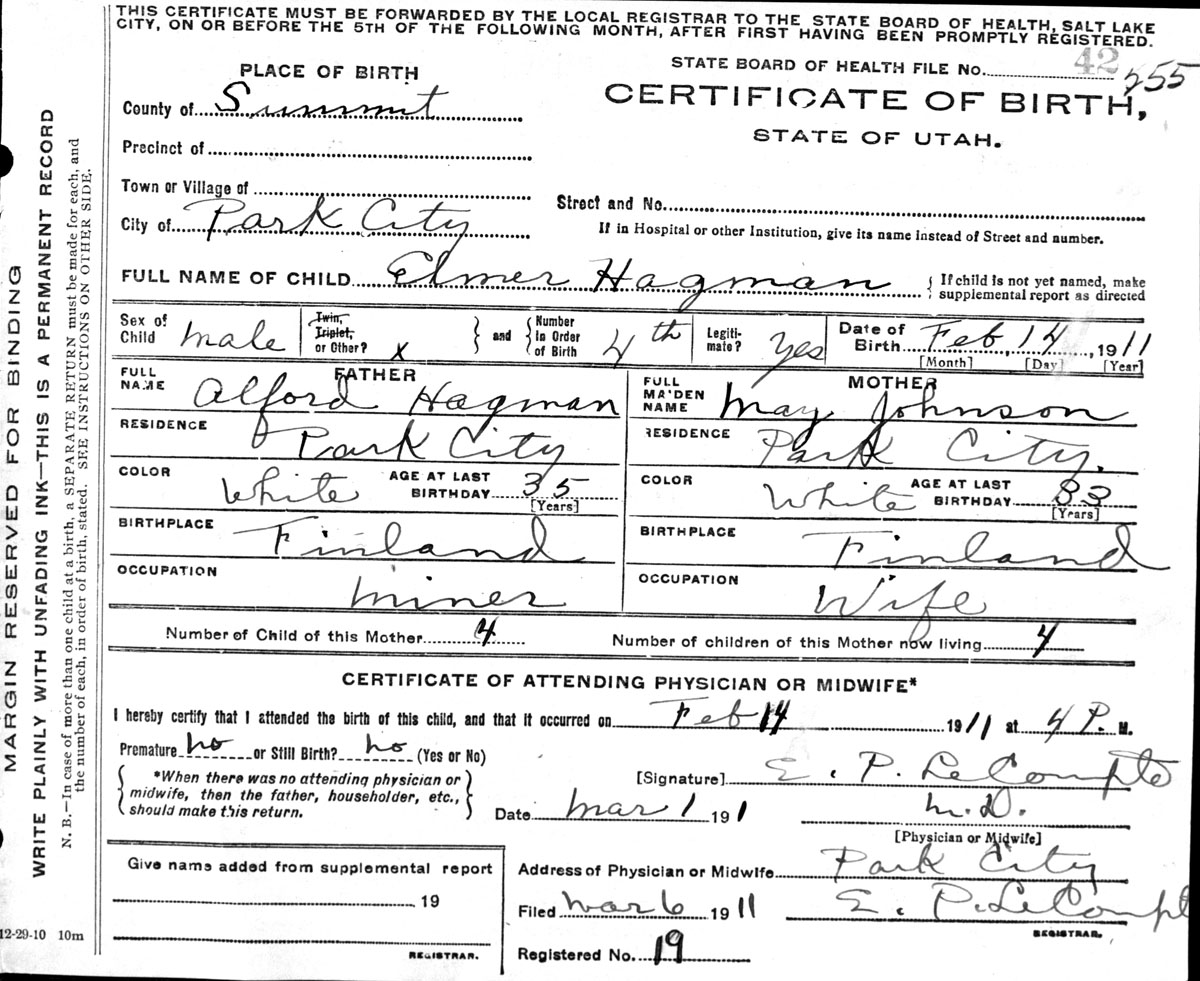 THIS CERTIFICATE MUST BE FORWARDED BY THE LOCAL REGISTRAR TO THE STATE BOARD OF HEALTH, SALT LAKE
CITY, ON OR BEFORE THE 5TH OF THE FOLLOWING MONTH, AFTER FIRST HAVING BEEN PROMPTLY REGISTERED.
MARGIN RESERVED FOR BINDING
WRITE PLAINLY WITH UNFADING INK—THIS IS A PERMANENT RECORD
N. B.—In case of more than one child at a birth, a SEPARATE RETURN must be made for each, and
the number of each, in order of birth, stated. SEE INSTRUCTIONS ON OTHER SIDE.
PLACE OF BIRTH
STATE BOARD OF HEALTH FILE No. 42 255
County of Summit
CERTIFICATE OF BIRTH,
STATE OF UTAH.
Precinct of
Town or Village of
Street and No.
City of Park City
If in Hospital or other Institution, give its name instead of Street and number.
FULL NAME OF CHILD Elmer Hagman
{ If child is not yet named, make
supplemental report as directed
Sex of
Child male
Twin,
Triplet,
or Other? x
} and {
Number
in Order
of Birth 4th
Legiti-
mate? Yes
Date of
Birth Feb, 14, 1911
[Month] [Day] [Year]
FATHER
FULL
NAME Alford Hagman
RESIDENCE Park City
COLOR White AGE AT LAST
BIRTHDAY 35
[Years]
BIRTHPLACE Finland
OCCUPATION miner
MOTHER
FULL
MA'DEN
NAME May Johnson
RESIDENCE Park City.
COLOR White AGE AT LAST
BIRTHDAY 33
[Years]
BIRTHPLACE Finland
OCCUPATION Wife
Number of Child of this Mother 4 Number of children of this Mother now living 4
CERTIFICATE OF ATTENDING PHYSICIAN OR MIDWIFE*
I hereby certify that I attended the birth of this child, and that it occurred on Feb 14 1911 at 4 P. M.
Premature no or Still Birth? no (Yes or No)
{ *When there was no attending physician or
midwife, then the father, householder, etc.,
should make this return. }
[Signature] E. P. LeCompte
Date Mar 1 191 1 M.D.
[Physician or Midwife]
Give name added from supplemental report
19
REGISTRAR.
Address of Physician or Midwife Park City
Filed Mar 6 1911 E. P. LeCompt
REGISTRAR.
Registered No. 19
12-29-10 10m